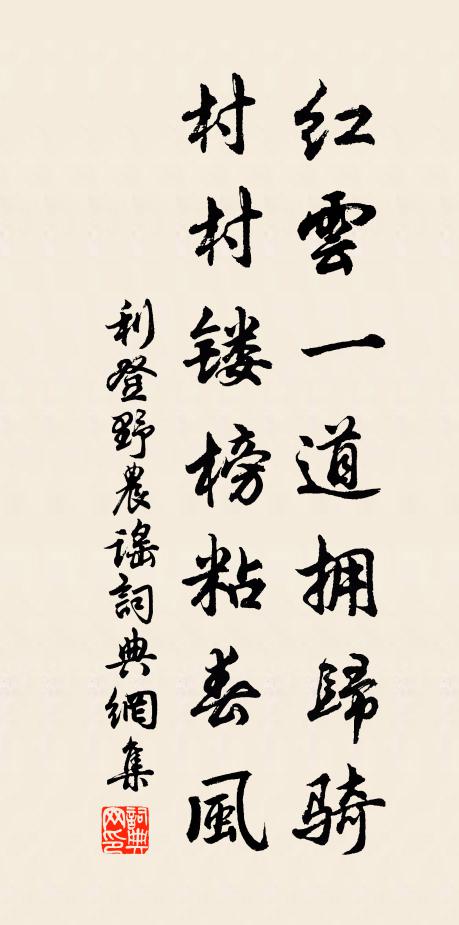 红雲一道拥歸骑
村村镂榜粘春風
利登野農謠詞典網集
詞典网印